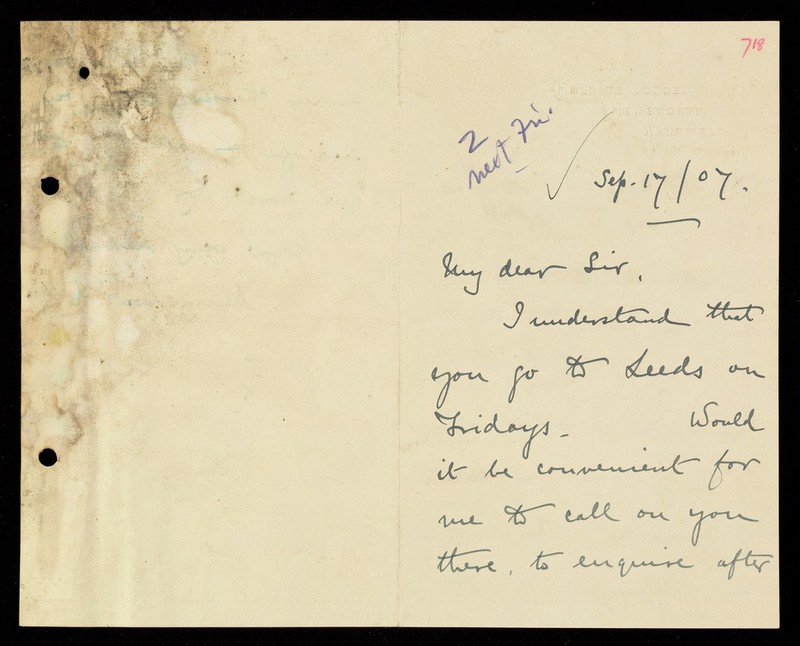 718
LODGE,
HEMSWORTH,
WAKEFIELD.
2
next Fri.
Sep. 17/07.
My dear Sir,
I understand that
you go to Leeds on
Fridays. Would
it be convenient for
me to call on you
there, to enquire after